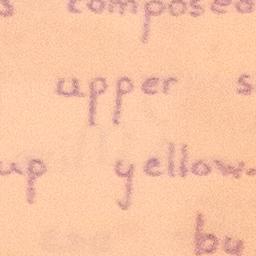 composed
upper
up yellow.
by